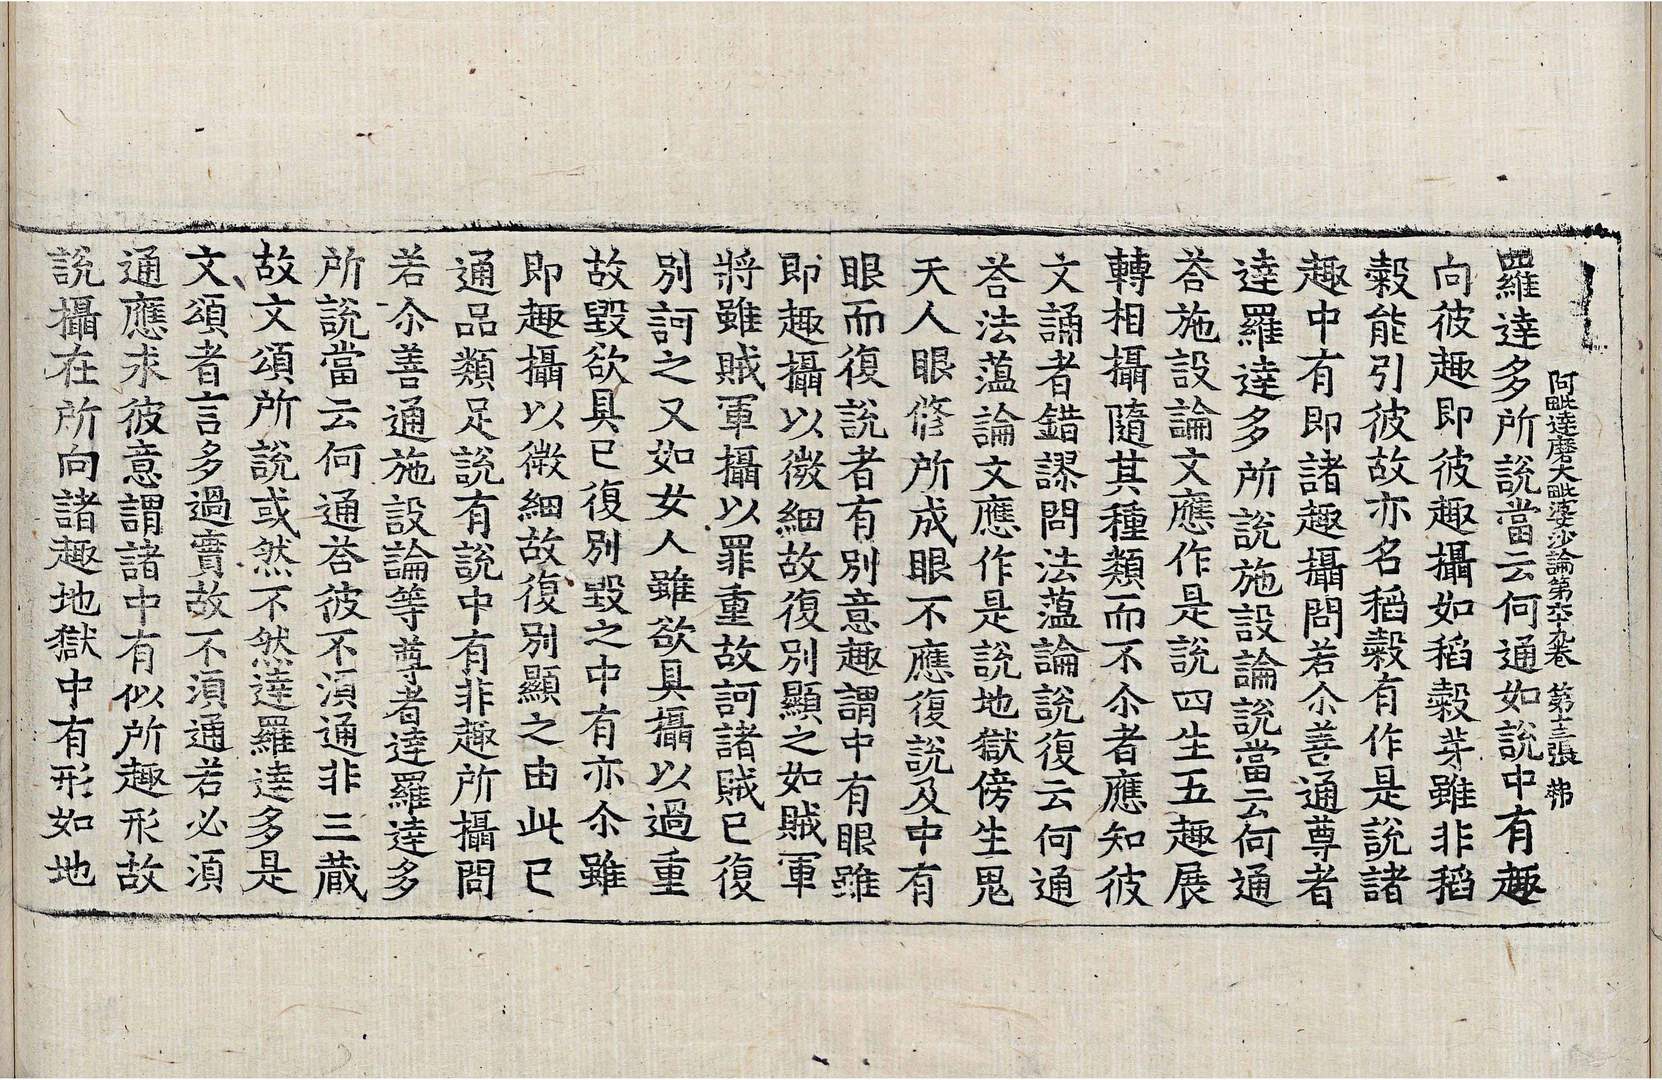 阿毗達磨大毗婆沙論第六十九卷 第十三張 弗
羅達多所說當云何通如說中有趣
向彼趣即彼趣攝如稻穀芽雖非稻
穀能引彼故亦名稻穀有作是說諸
趣中有即諸趣攝問若尒善通尊者
達羅達多所說施設論說當云何通
荅施設論文應作是說四生五趣展
轉相攝隨其種類而不尒者應知彼
文誦者錯謬問法蘊論說復云何通
荅法蘊論文應作是說地獄傍生鬼
天人眼修所成眼不應復說及中有
眼而復說者有別意趣謂中有眼雖
即趣攝以微細故復別顯之如賊軍
將雖賊軍攝以罪重故訶諸賊已復
別訶之又如女人雖欲具攝以過重
故毀欲具已復別毀之中有亦尒雖
即趣攝以微細故復別顯之由此已
通品類足說有說中有非趣所攝問
若尒善通施設論等尊者達羅達多
所說當云何通荅彼不湏通非三藏
故文頌所說或然不然達羅達多是
文頌者言多過實故不湏通若必湏
通應求彼意謂諸中有似所趣形故
說攝在所向諸趣地獄中有形如地